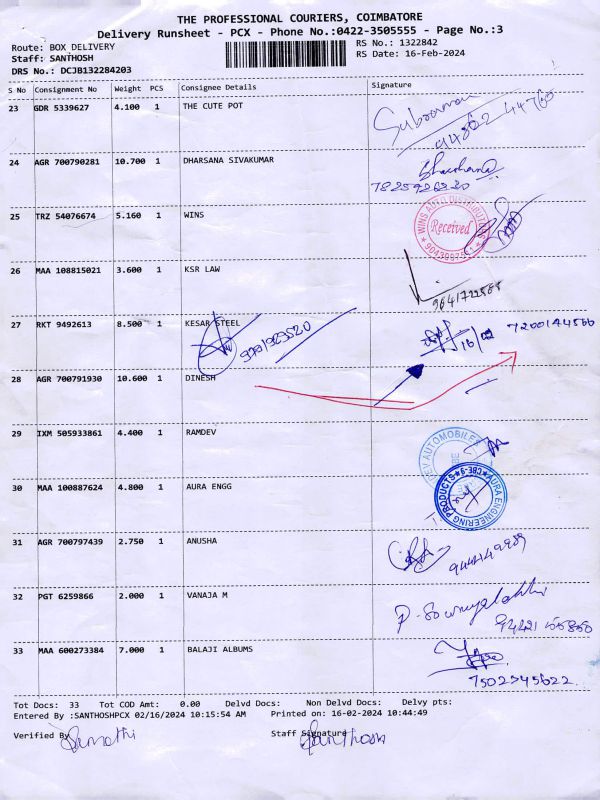 THE PROFESSIONAL COURIERS, COIMBATORE
Delivery Runsheet - PCX - Phone No.:0422-3505555 - Page No.:3
Route: BOX DELIVERY RS No.: 1322842
Staff: SANTHOSH RS Date: 16-Feb-2024
DRS No.: DCJB132284203
S No Consignment No Weight PCS Consignee Details Signature
23 GDR 5339627 4.100 1 THE CUTE POT
94862 44760
24 AGR 700790281 10.700 1 DHARSANA SIVAKUMAR
7825926230
25 TRZ 54076674 5.160 1 WINS
WINS AUTO DISTRIBUTORS
Received
26 MAA 108815021 3.600 1 KSR LAW
9641722565
27 RKT 9492613 8.500 1 KESAR STEEL
16/02 7200144566
28 AGR 700791930 10.600 1 DINESH
29 IXM 505933861 4.400 1 RAMDEV
DEV AUTOMOBILES
30 MAA 100887624 4.800 1 AURA ENGG
AURA ENGINEERING PRODUCTS CBE-9
31 AGR 700797439 2.750 1 ANUSHA
32 PGT 6259866 2.000 1 VANAJA M
P. Sowmyalakshmi
94421 55850
33 MAA 600273384 7.000 1 BALAJI ALBUMS
7502345622
Tot Docs: 33 Tot COD Amt: 0.00 Delvd Docs: Non Delvd Docs: Delvy pts:
Entered By :SANTHOSHPCX 02/16/2024 10:15:54 AM Printed on: 16-02-2024 10:44:49
Verified By Sumathi Staff Signature Santhosh